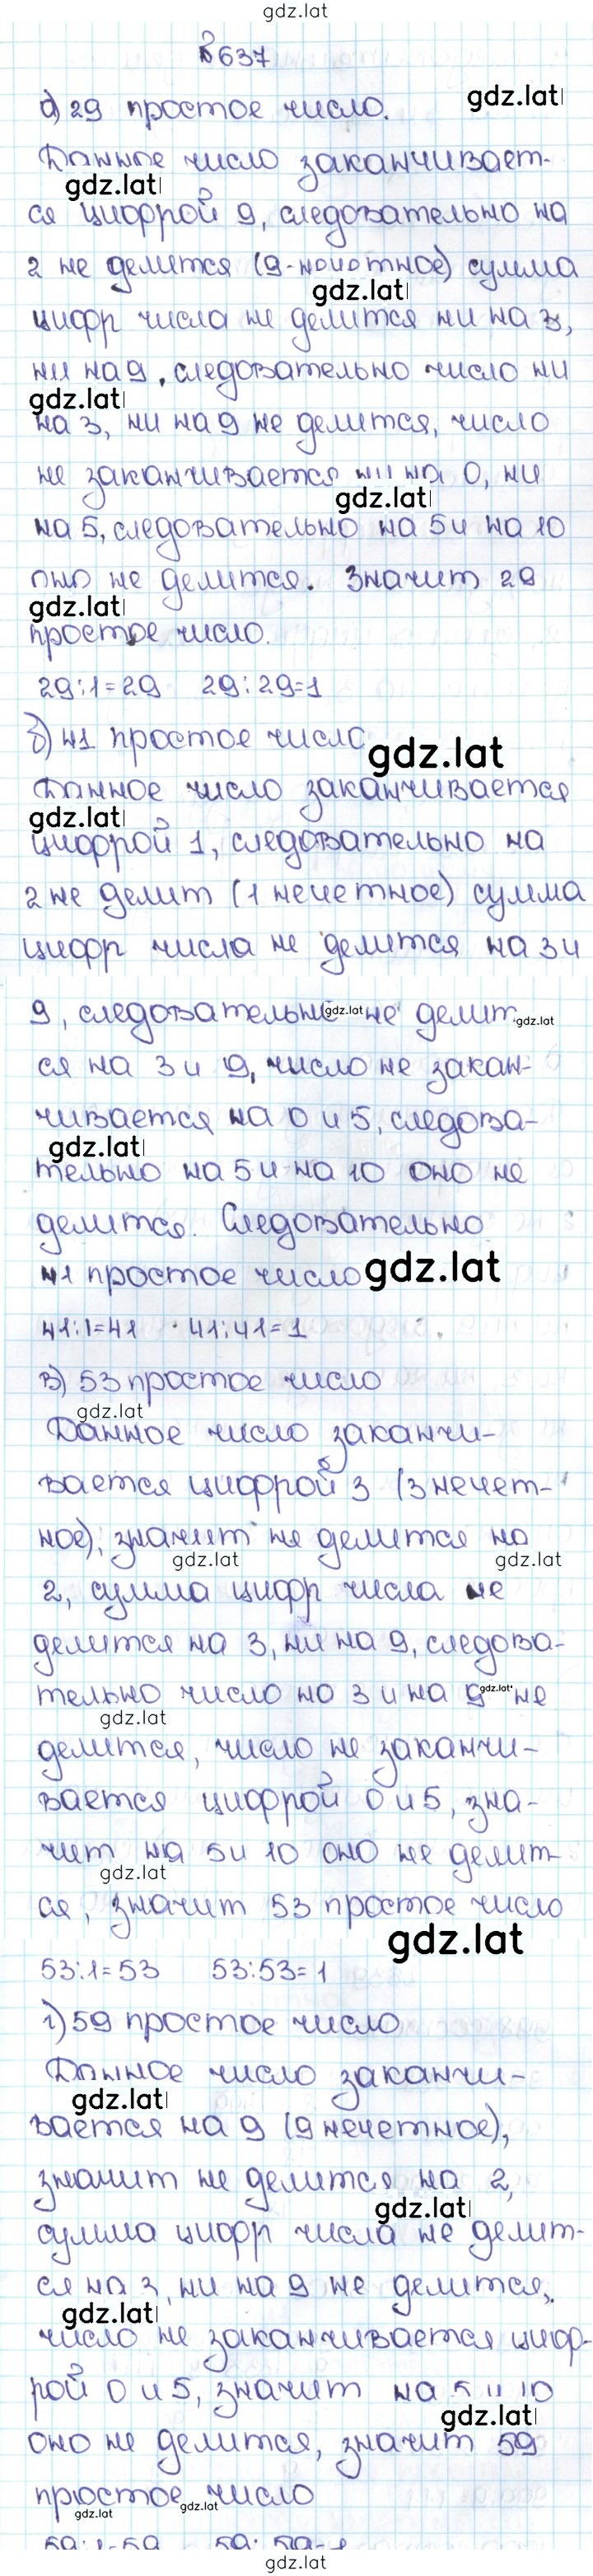 gdz.lat
№637
а) 29 простое число. gdz.lat
Данное число заканчивает-
gdz.lat
ся цифрой 9, следовательно на
2 не делится (9-нечетное) сумма
gdz.lat
цифр числа не делится ни на 3,
ни на 9, следовательно число ни
gdz.lat
на 3, ни на 9 не делится, число
не заканчивается ни на 0, ни
gdz.lat
на 5, следовательно на 5 и на 10
оно не делится. Значит 29
gdz.lat
простое число.
29:1=29 29:29=1
б) 41 простое число gdz.lat
Данное число заканчивается
gdz.lat
цифрой 1, следовательно на
2 не делит (1 нечетное) сумма
цифр числа не делится на 3 и
9, следовательно gdz.lat не делит- gdz.lat
ся на 3 и 9, число не закан-
чивается на 0 и 5, следова-
gdz.lat
тельно на 5 и на 10 оно не
делится. Следовательно
41 простое число gdz.lat
41:1=41 41:41=1
в) 53 простое число
gdz.lat
Данное число заканчи-
вается цифрой 3 (3 нечет-
ное), значит не делится на
gdz.lat gdz.lat
2, сумма цифр числа не
делится на 3, ни на 9, следова-
тельно число на 3 и на 9 gdz.lat не
gdz.lat
делится, число не заканчи-
вается цифрой 0 и 5, зна-
чит на 5 и 10 оно не делит-
gdz.lat
ся, значит 53 простое число
gdz.lat
53:1=53 53:53=1
г) 59 простое число
Данное число заканчи-
gdz.lat
вается на 9 (9 нечетное),
значит не делится на 2,
gdz.lat
сумма цифр числа не делит-
ся на 3, ни на 9 не делится,
gdz.lat
число не заканчивается циф-
рой 0 и 5, значит на 5 и 10
gdz.lat
оно не делится, значит 59
простое число
gdz.lat gdz.lat
59:1=59 59:59=1
gdz.lat